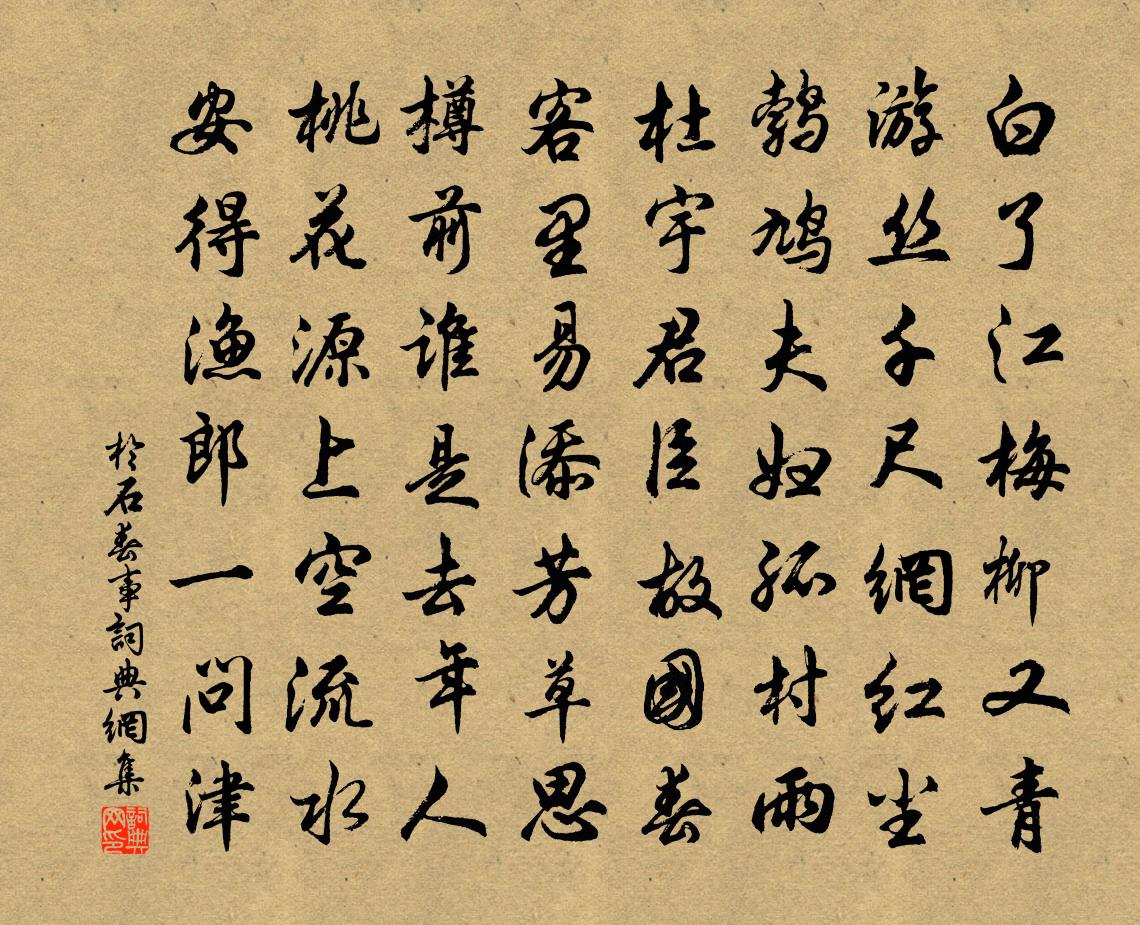 白了江梅柳又青
游丝千尺網红尘
鹁鸠夫妇孤村雨
杜宇君臣故國春
客里易添芳草思
樽前谁是去年人
桃花源上空流水
安得渔郎一问津
於石春事詞典網集
詞典网印